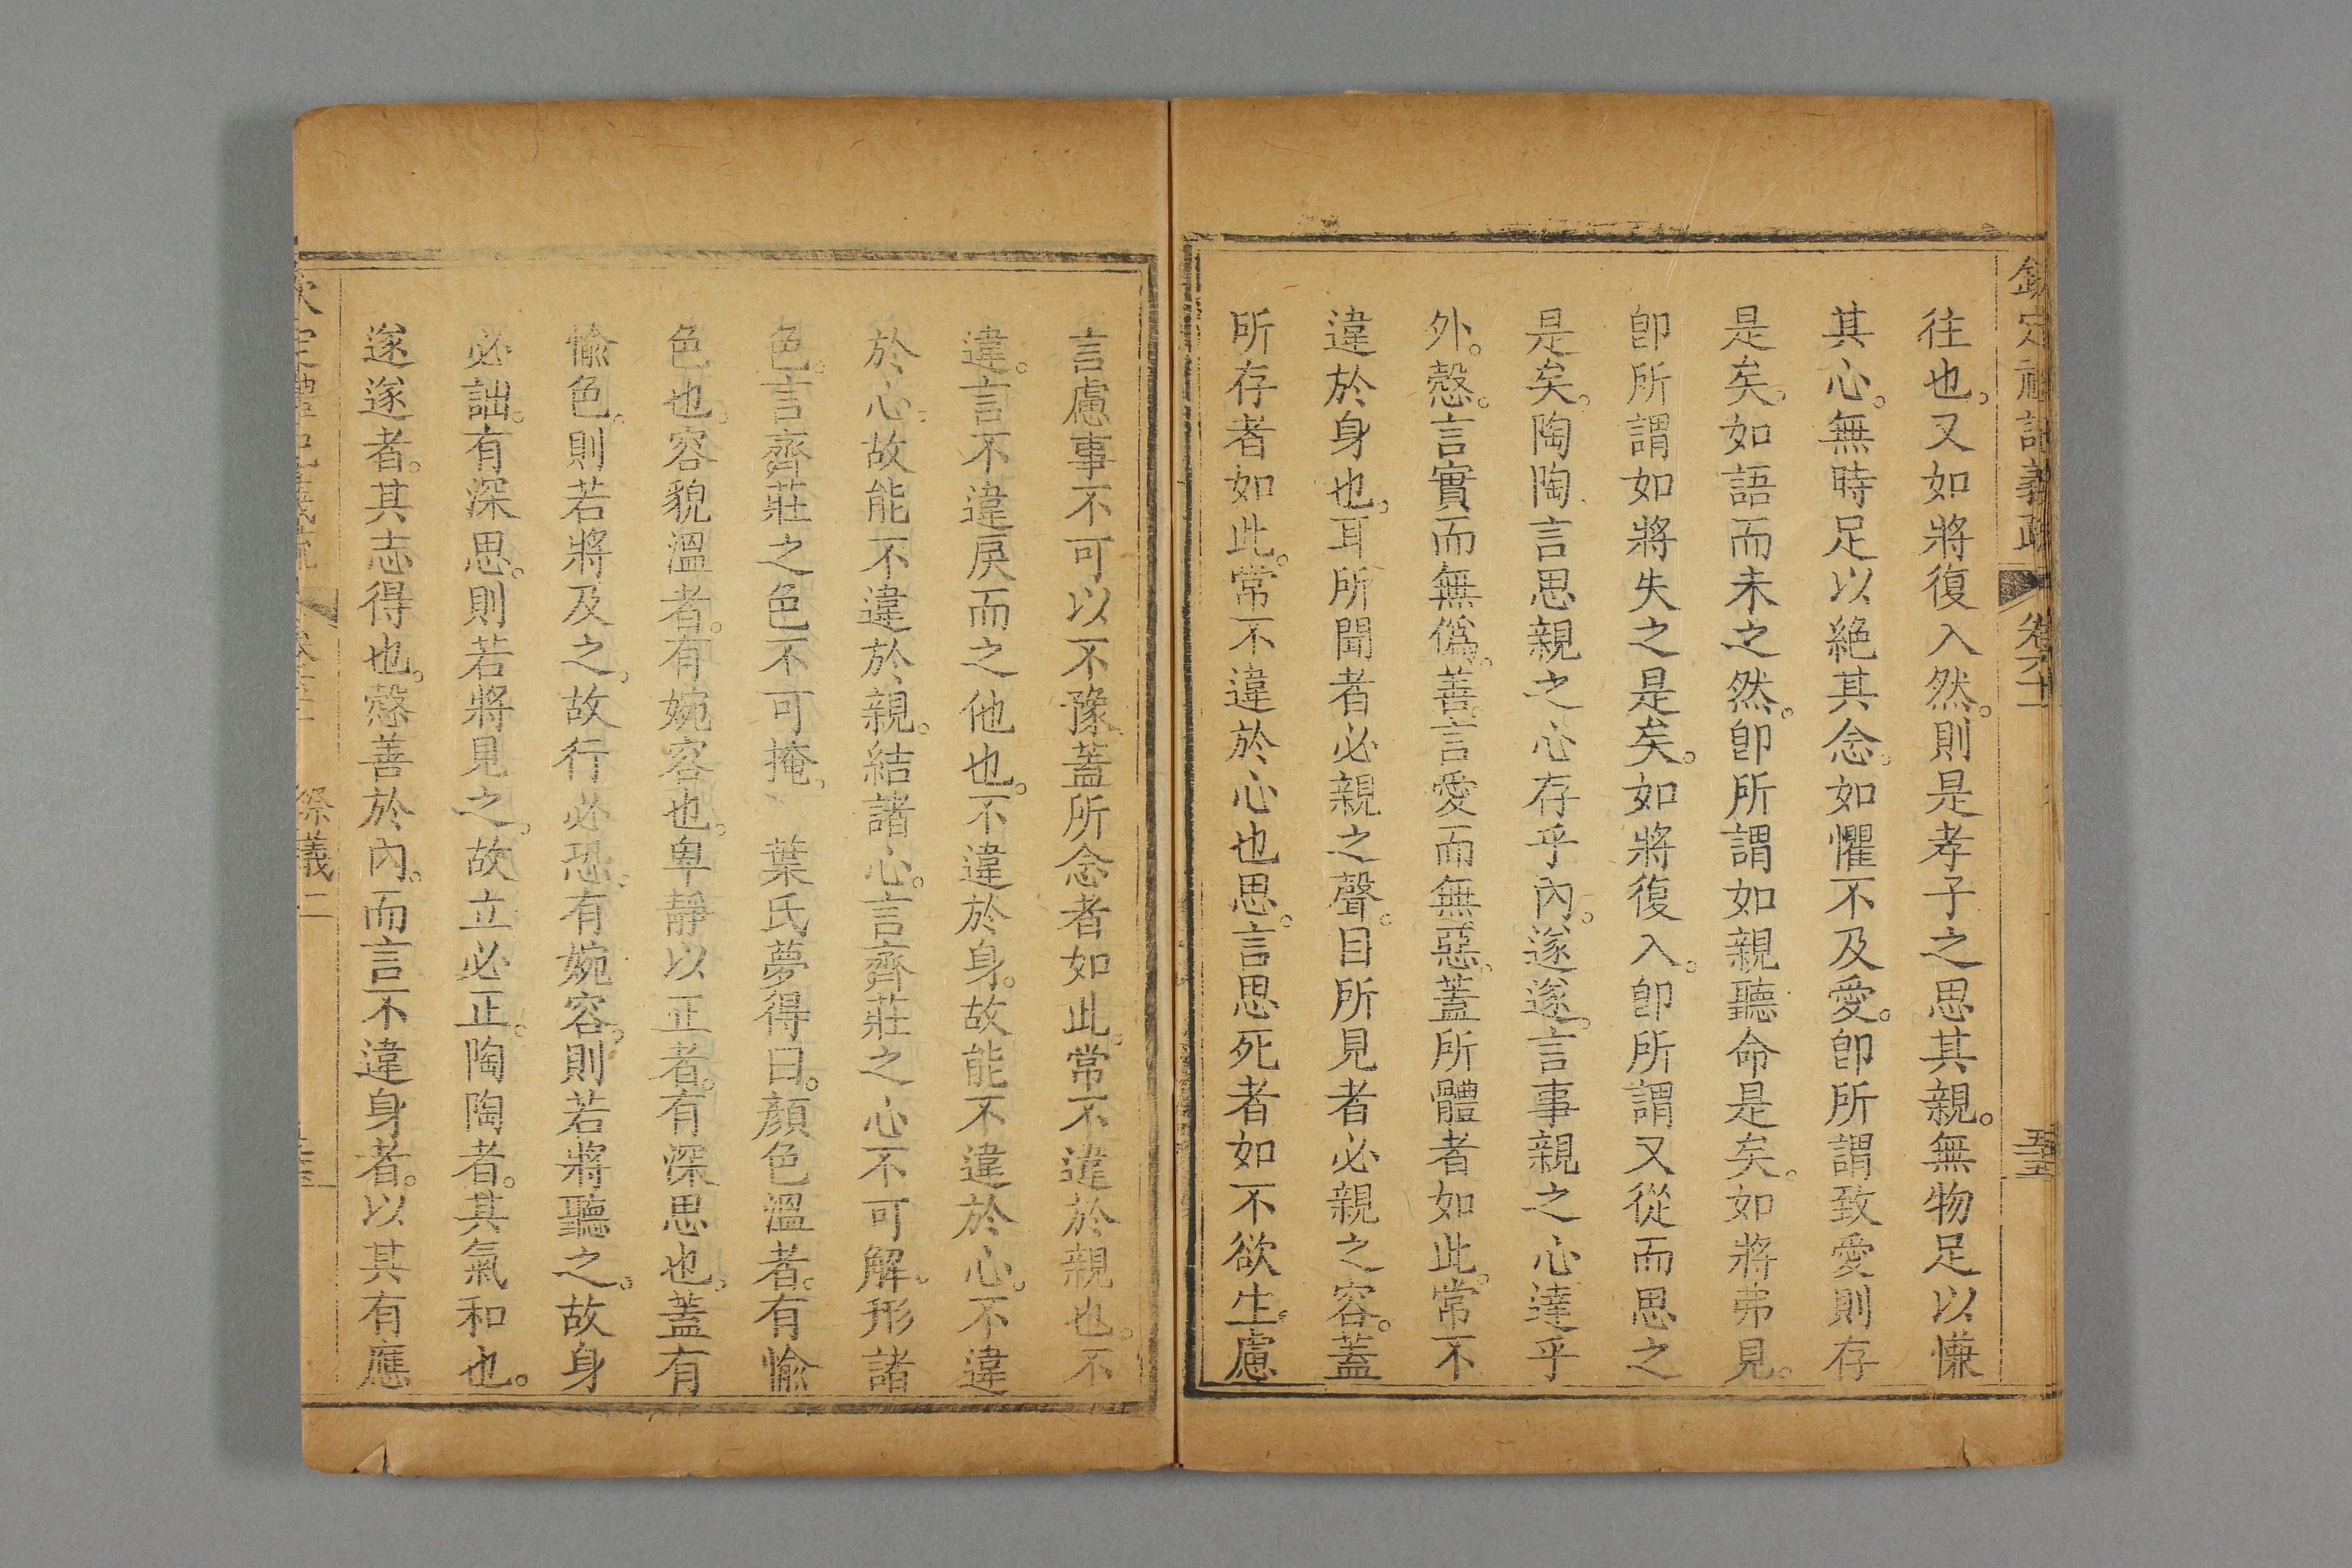 往也。又如將復入然。則是孝子之思其親。無物足以慊
其心。無時足以絶其念。如懼不及愛。卽所謂致愛則存
是矣。如語而未之然。卽所謂如親聽命是矣。如將弗見。
卽所謂如將失之是矣。如將復入。卽所謂又從而思之
是矣。陶陶言思親之心存乎內。遂遂。言事親之心達乎
外。慤。言實而無僞。善。言愛而無惡。蓋所體者如此。常不
違於身也。耳所聞者必親之聲。目所見者必親之容。蓋
所存者如此。常不違於心也思。言思死者如不欲生。慮
言慮事不可以不豫。蓋所念者如此。常不違於親也。不
違。言不違戾而之他也。不違於身。故能不違於心。不違
於心。故能不違於親。結諸心。言齊莊之心不可解。形諸
色。言齊莊之色不可掩。 葉氏夢得曰。顏色溫者。有愉
色也。容貌溫者。有婉容也。卑靜以正者。有深思也。蓋有
愉色。則若將及之。故行必恐。有婉容。則若將聽之。故身
必詘。有深思。則若將見之。故立必正。陶陶者。其氣和也。
遂遂者。其志得也。慤善於內。而言不違身者。以其有應
祭義二